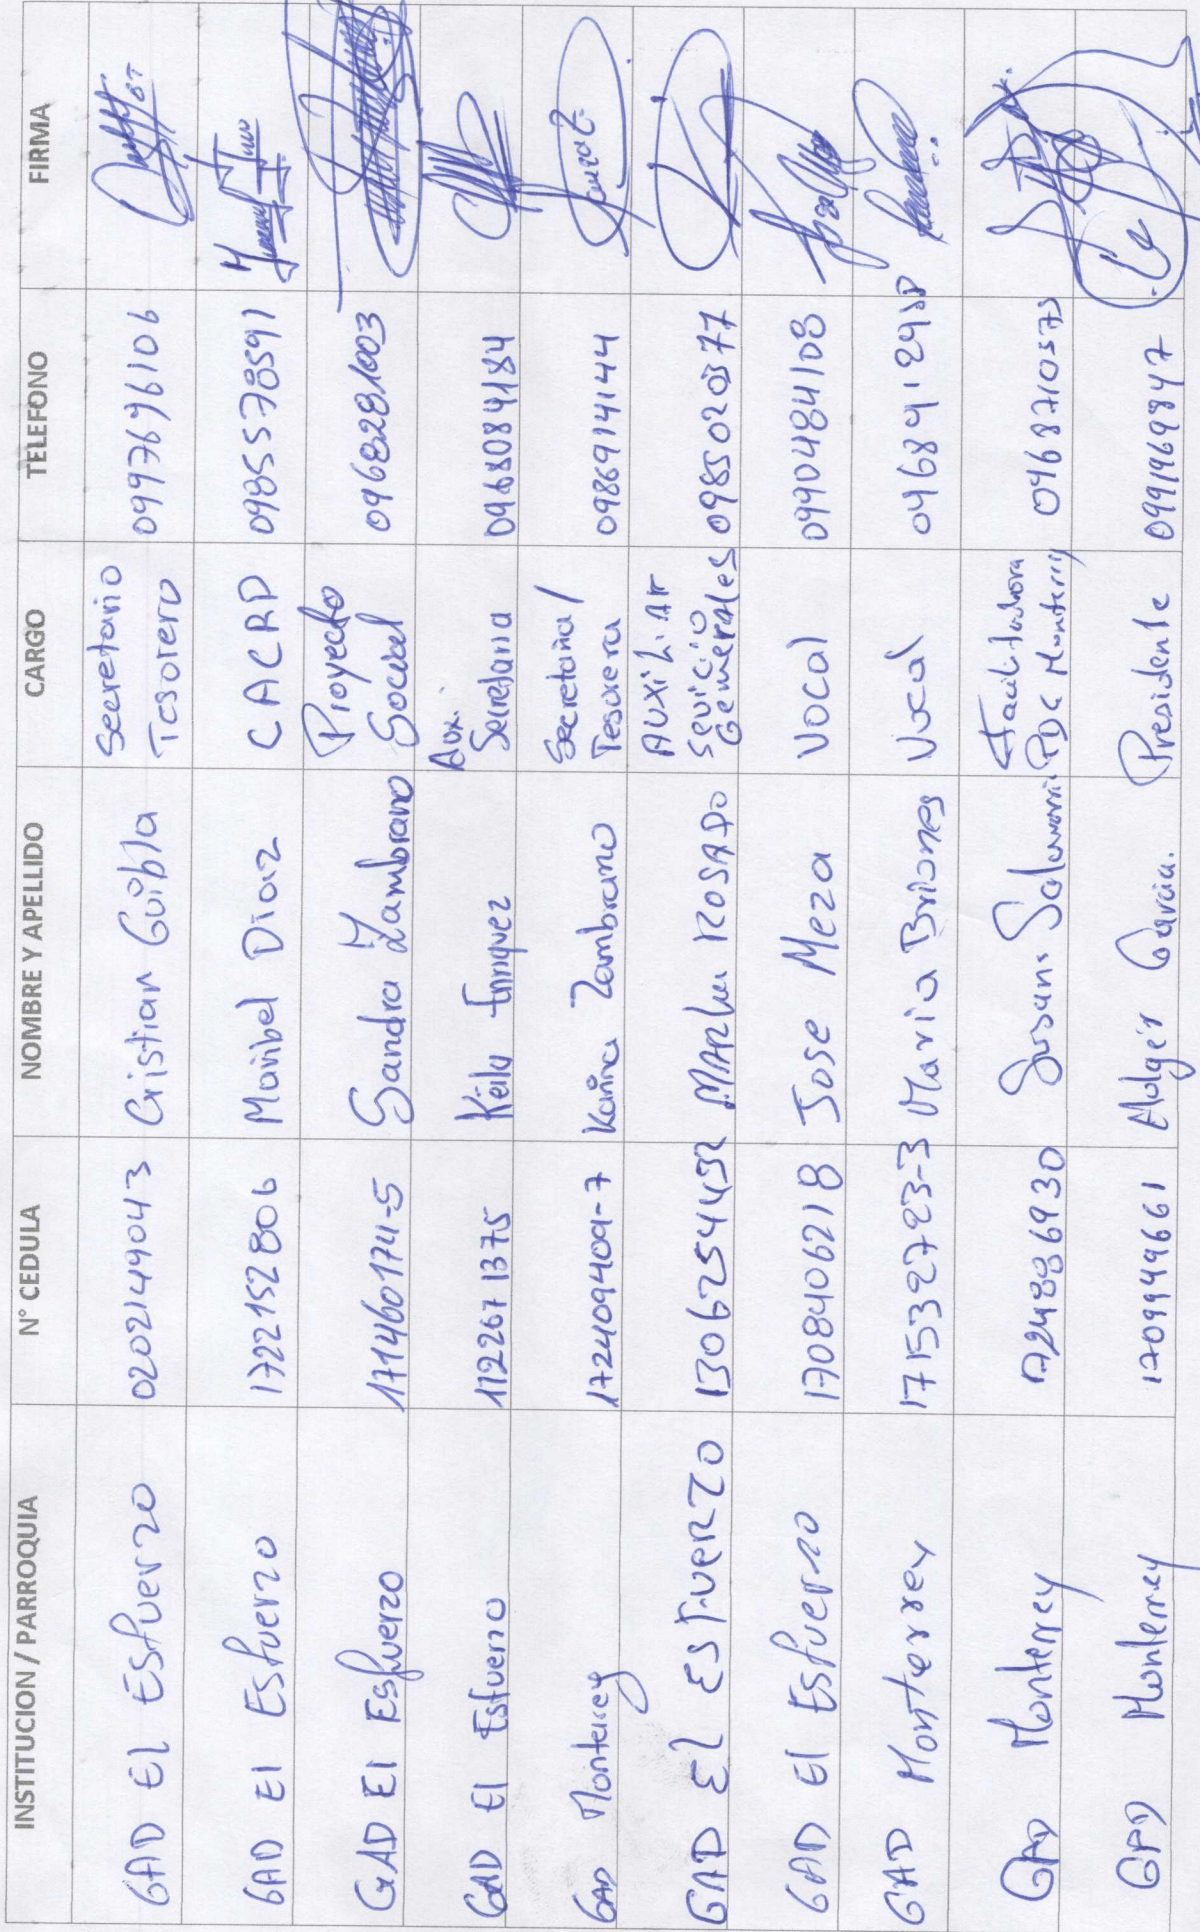 INSTITUCION / PARROQUIA N° CEDULA NOMBRE Y APELLIDO CARGO TELEFONO FIRMA
GAD El Esfuerzo 0202149043 Cristian Guibla Secretario Tesorero 0997696106
GAD El Esfuerzo 1722152806 Maribel Diaz CACRP 0985578591
GAD El Esfuerzo 171460174-5 Sandra Zambrano Proyecto Social
GAD El Esfuerzo Keila Enriquez Aux. Secretaria 0968084184
GAD Monterrey 172409409-7 Karina Zambrano Secretaria / Tesorera 0986914144
GAD El ESFUERZO 1306254432 ROSADO AUXILIAR Generales 0985020377
GAD El Esfuerzo 1708406218 Jose Meza Vocal 0990484108
GAD Monterrey 171532723-3 Maria Briones Vocal
GAD Monterrey Susana Facilitadora PDC Monterrey
GAD Monterrey 1709949661 Holger Garcia. Presidente 0991969847